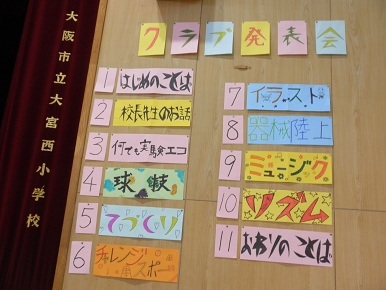 クラブ発表会
大阪市立大宮西小学校
1 はじめのことば
2 校長先生のお話
3 何でも実験エコ
4 球技
5 てづくり
6 チャレンジスポーツ
7 イラスト
8 器械陸上
9 ミュージック
10 リズム
11 おわりのことば